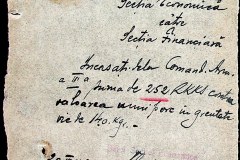 Secția Economică
către
Secția Financiară
Încasați dela Comand. Arm.
a VI a suma de 252 RKKS contra
valoarea unui porc în greutate
vie de 140 kgr.